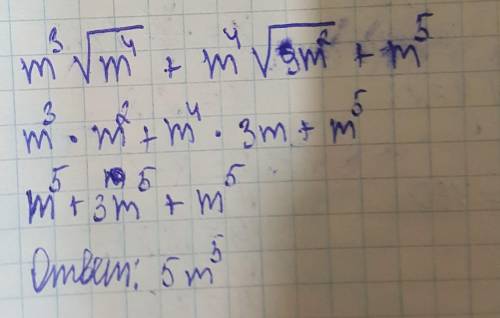 m³√m⁴ + m⁴√9m² + m⁵
m³ · m² + m⁴ · 3m + m⁵
m⁵ + 3m⁵ + m⁵
Ответ: 5m⁵